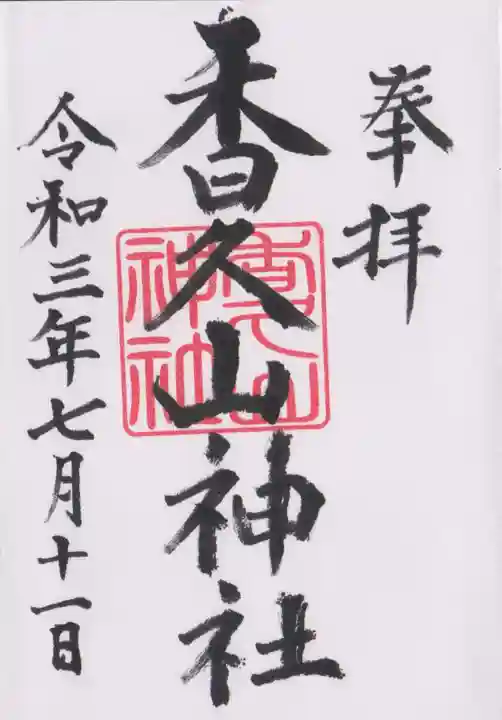 奉拝
香久山神社
香久山神社
令和三年七月十一日